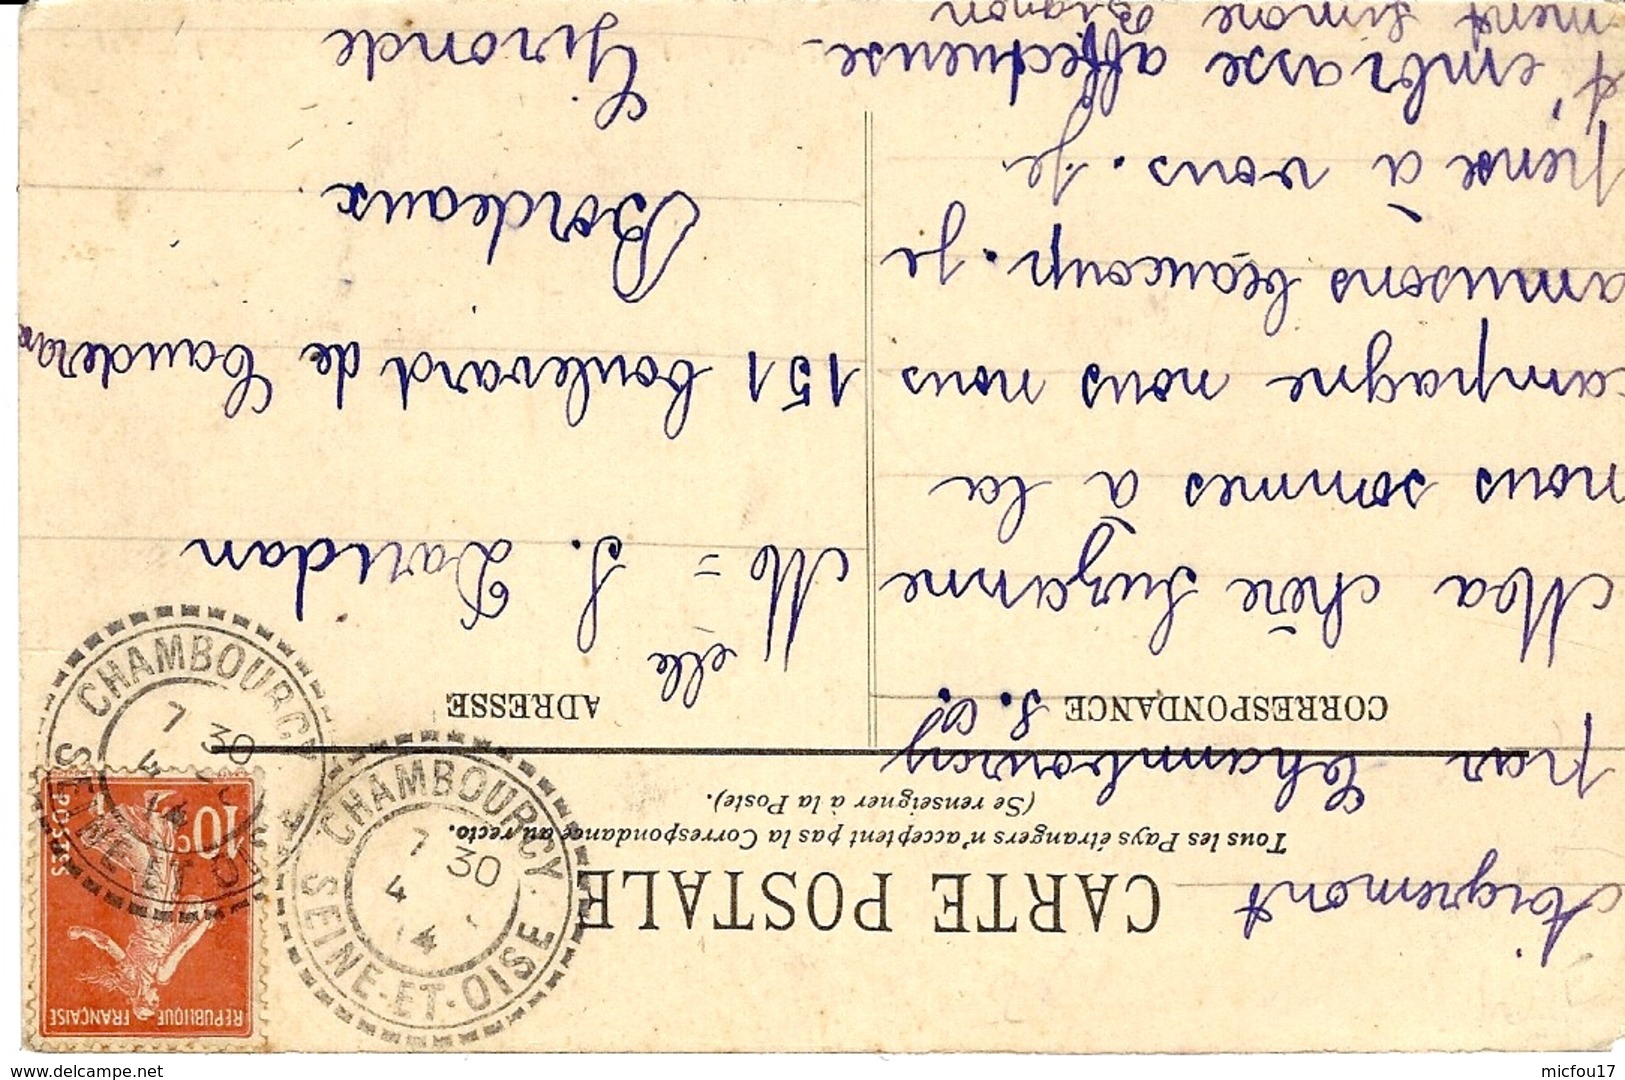 Aigremont
CARTE POSTALE
Tous les Pays étrangers n'acceptent pas la Correspondance au recto.
(Se renseigner à la Poste).
par Chambourcy
S. O.
CORRESPONDANCE
Ma chère Suzanne
nous sommes à la
campagne nous nous
amusons beaucoup. Je
pense à vous. Je
t'embrasse affectueuse-
ment Simone Bignon
ADRESSE
Melle S. Daridan
151 boulevard de Cauderan
Bordeaux.
Gironde
RÉPUBLIQUE FRANÇAISE
10c
POSTES
CHAMBOURCY
7 30
4
14
SEINE-ET-OISE
CHAMBOURCY
7 30
4
14
SEINE-ET-OISE
delcampe.net
micfou17